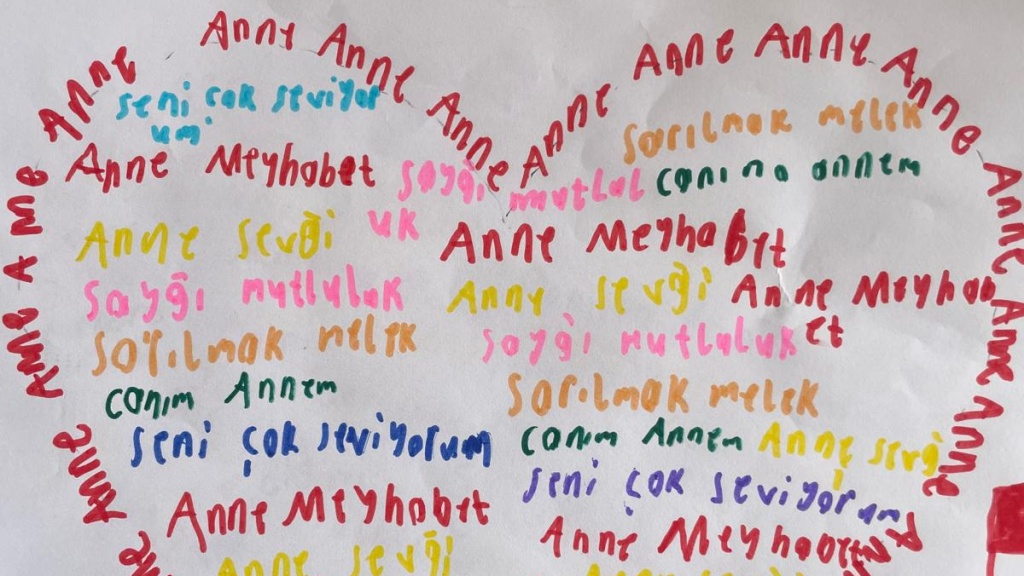 Anne Anny Anne Anne Anne Anne Anne Anne Anne Anne Anne
seni çok seviyor
um
sarılmak melek
Anne Meyhabet saygı mutlul
uk
canı na annem
Anne sevği
Anne Meyhabet
saygı mutluluk
Anny sevği
Anne Meyhab
et
sarılmak melek
saygi mutluluk
canım Annem
sarılmak melek
seni çok seviyorum
canım Annem
Anne sevği
seni çok seviyorum
Anne Meyhabet
Anne Meyhabet
Anne sevği
Anne